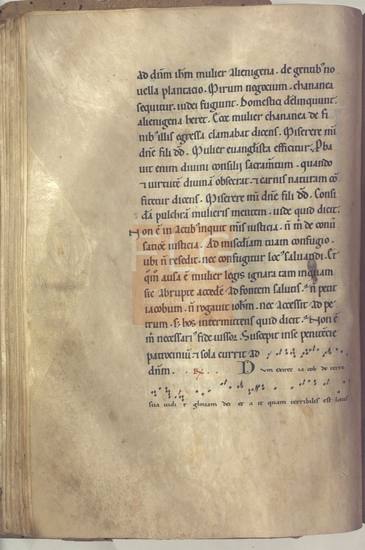 Ad dnm ihm mulier alienigena. de gentib' no
uella plantacio. Mirum negocium. chananea
sequitur. iudei fugiunt. Domestici delinquunt.
alienigena heret. Ecce mulier chananea de fi
nib' illis egressa clamabat dicens. Miserere mi
dne fili dd. Mulier euanglista efficitur. Pba
uit enim diuini consilii sacramtum. quando
⁊ uirtute diuina obsecrat. ⁊ carnis naturam co
fitetur dicens. Miserere mi dne fili dd. Consi
da pulchra mulieris mentem. uide quid dicit.
Non e in actib' inquit mis iusticia. n m de conu
satioe iusticia. Ad misediam quam confugio.
ubi n resedit. nec confugitur loc' saluandi. Et
qm ausa e mulier legis ignara tam
sic abrupte accede ad fontem salutis. n petit
iacobum. n rogauit iohm. nec accessit ad pe
trum. s; hos intermittens quid dicit. Non e
m necessari' fide iussor. Suscepit in se penitencie
patrociniu ⁊ sola currit ad
dnm. R. Dum exiret ia cob de terra
sua uidi t gloriam dei et a it quam terribilis est locus